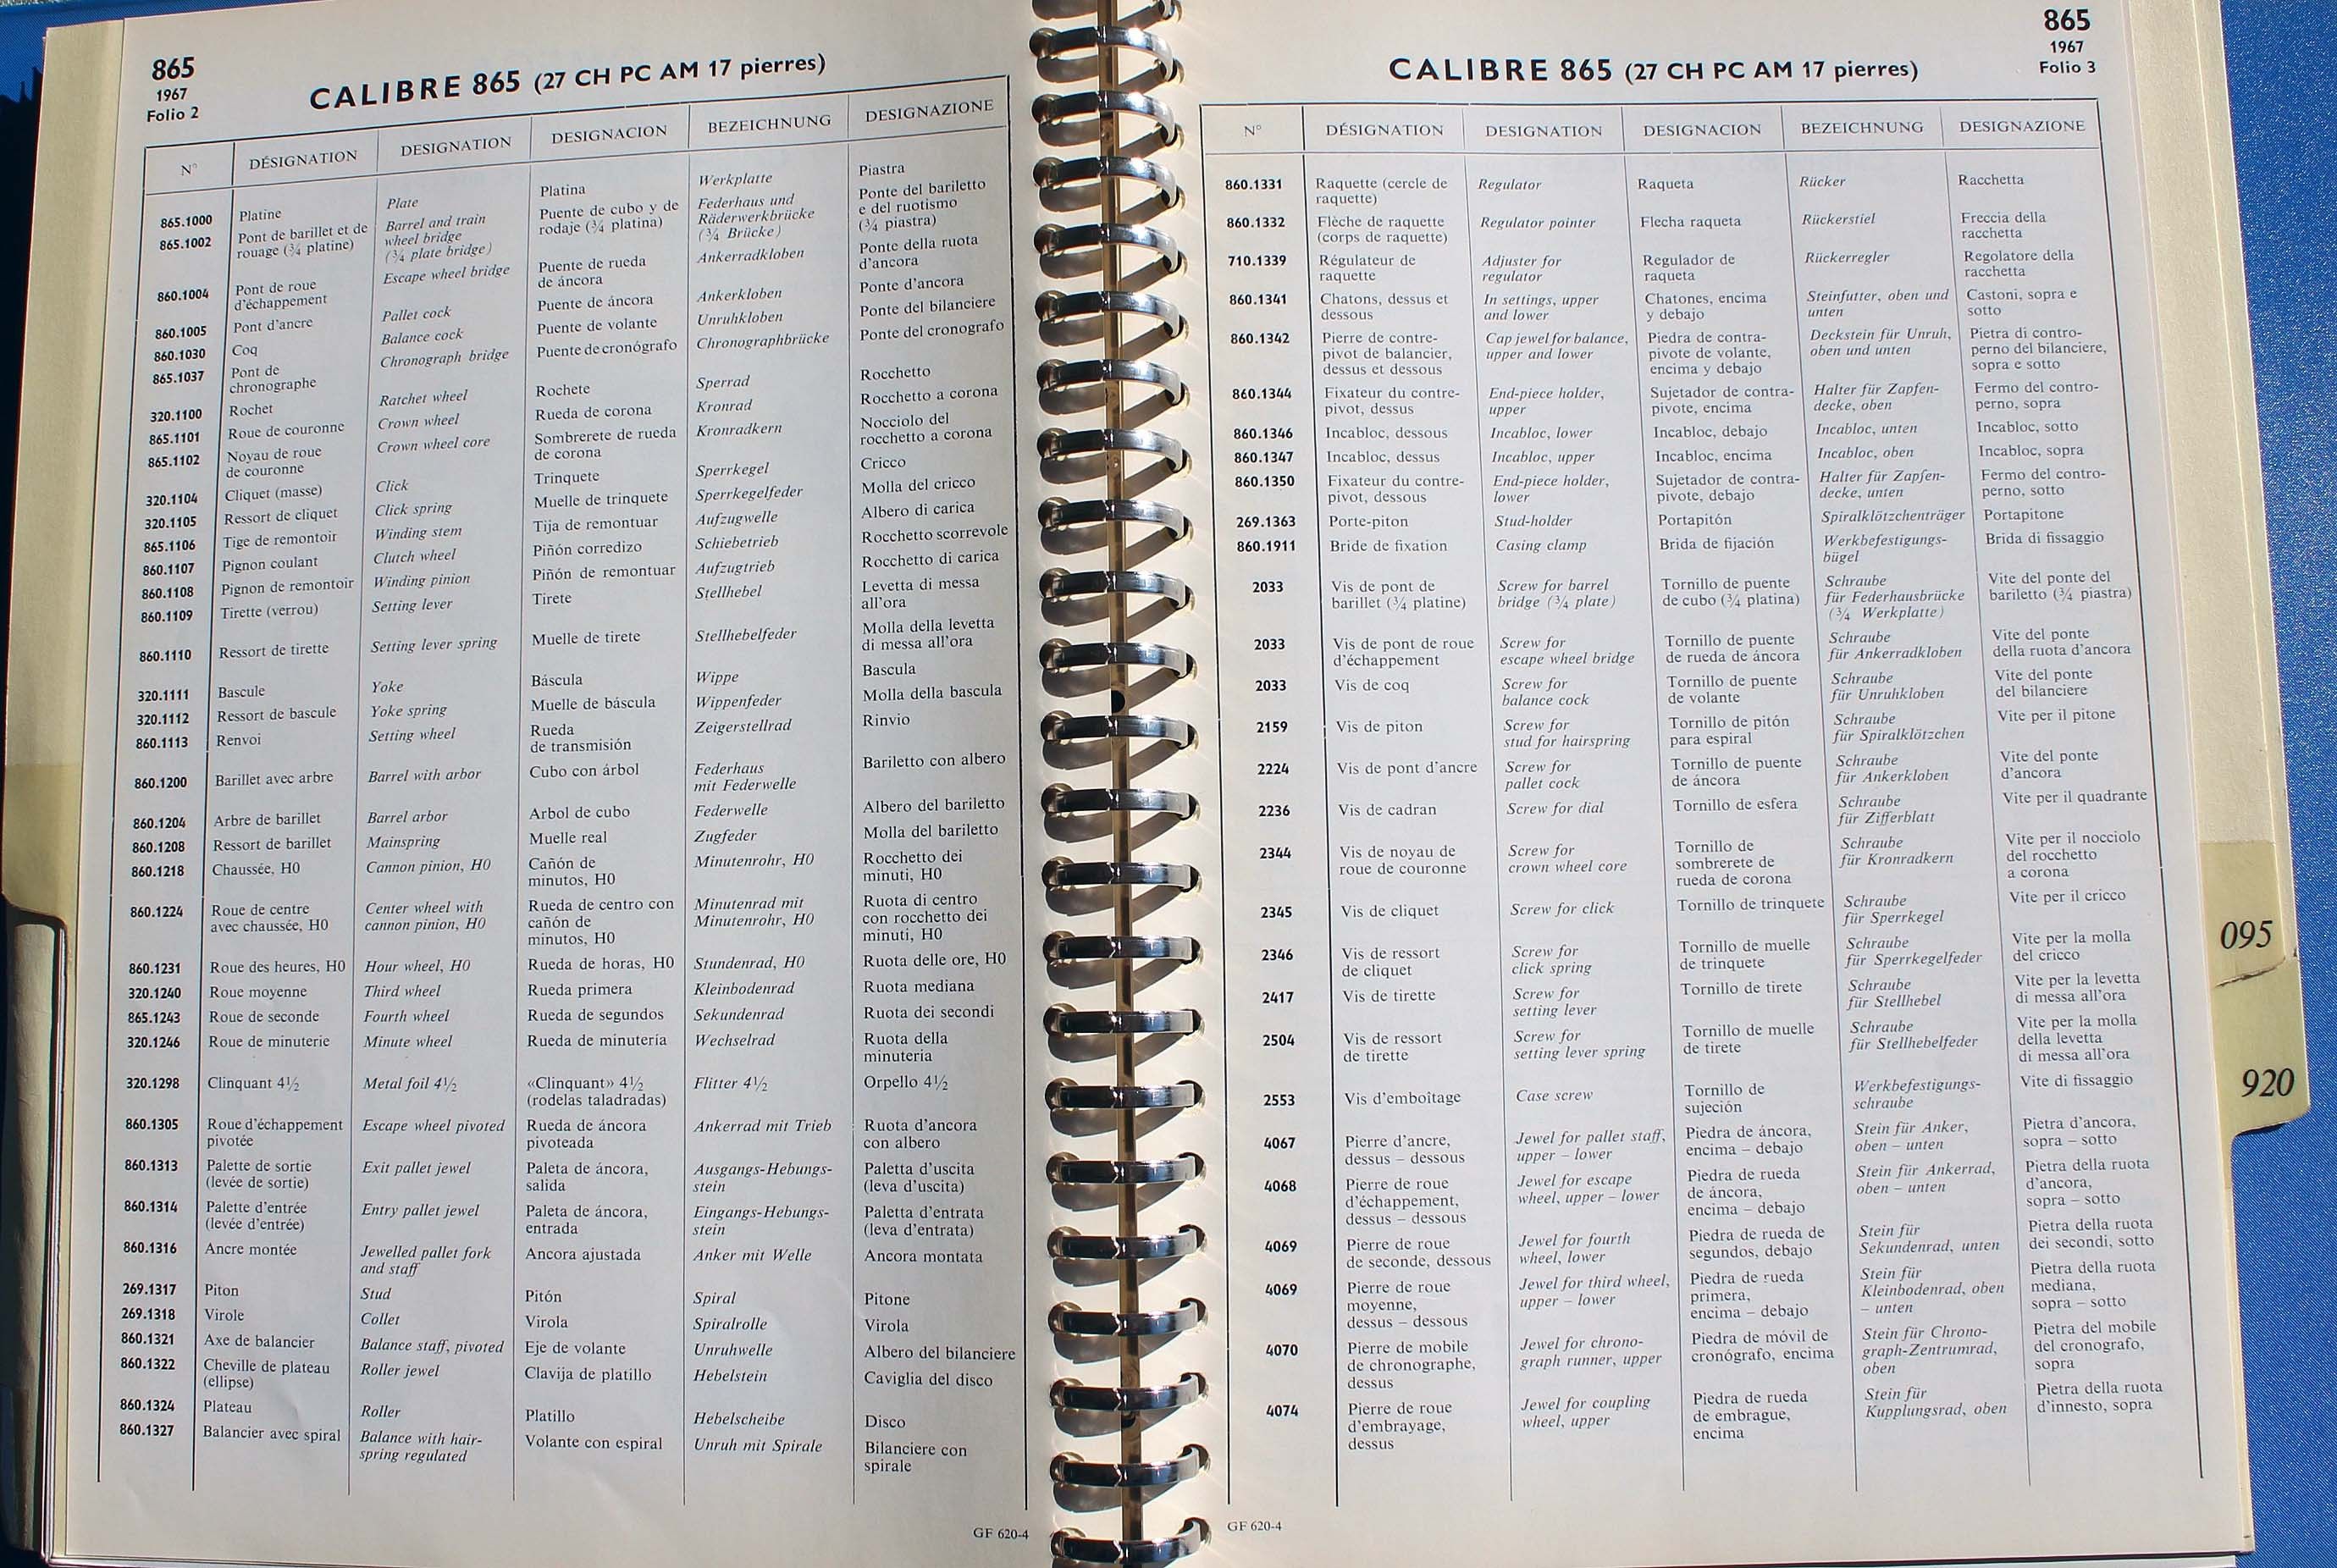 865
1967
Folio 2
CALIBRE 865 (27 CH PC AM 17 pierres)
N° DÉSIGNATION DESIGNATION DESIGNACION BEZEICHNUNG DESIGNAZIONE
865.1000 Platine Plate Platina Werkplatte Piastra
865.1002 Pont de barillet et de rouage (¾ platine) Barrel and train wheel bridge (¾ plate bridge) Puente de cubo y de rodaje (¾ platina) Federhaus und Räderwerkbrücke (¾ Brücke) Ponte del bariletto e del ruotismo (¾ piastra)
860.1004 Pont de roue d'échappement Escape wheel bridge Puente de rueda de áncora Ankerradkloben Ponte della ruota d'ancora
860.1005 Pont d'ancre Pallet cock Puente de áncora Ankerkloben Ponte d'ancora
860.1030 Coq Balance cock Puente de volante Unruhkloben Ponte del bilanciere
865.1037 Pont de chronographe Chronograph bridge Puente de cronógrafo Chronographbrücke Ponte del cronografo
320.1100 Rochet Ratchet wheel Rochete Sperrad Rocchetto
865.1101 Roue de couronne Crown wheel Rueda de corona Kronrad Rocchetto a corona
865.1102 Noyau de roue de couronne Crown wheel core Sombrerete de rueda de corona Kronradkern Nocciolo del rocchetto a corona
320.1104 Cliquet (masse) Click Trinquete Sperrkegel Cricco
320.1105 Ressort de cliquet Click spring Muelle de trinquete Sperrkegelfeder Molla del cricco
865.1106 Tige de remontoir Winding stem Tija de remontuar Aufzugwelle Albero di carica
860.1107 Pignon coulant Clutch wheel Piñón corredizo Schiebetrieb Rocchetto scorrevole
860.1108 Pignon de remontoir Winding pinion Piñón de remontuar Aufzugtrieb Rocchetto di carica
860.1109 Tirette (verrou) Setting lever Tirete Stellhebel Levetta di messa all'ora
860.1110 Ressort de tirette Setting lever spring Muelle de tirete Stellhebelfeder Molla della levetta di messa all'ora
320.1111 Bascule Yoke Báscula Wippe Bascula
320.1112 Ressort de bascule Yoke spring Muelle de báscula Wippenfeder Molla della bascula
860.1113 Renvoi Setting wheel Rueda de transmisión Zeigerstellrad Rinvio
860.1200 Barillet avec arbre Barrel with arbor Cubo con árbol Federhaus mit Federwelle Bariletto con albero
860.1204 Arbre de barillet Barrel arbor Arbol de cubo Federwelle Albero del bariletto
860.1208 Ressort de barillet Mainspring Muelle real Zugfeder Molla del bariletto
860.1218 Chaussée, H0 Cannon pinion, H0 Cañón de minutos, H0 Minutenrohr, H0 Rocchetto dei minuti, H0
860.1224 Roue de centre avec chaussée, H0 Center wheel with cannon pinion, H0 Rueda de centro con cañón de minutos, H0 Minutenrad mit Minutenrohr, H0 Ruota di centro con rocchetto dei minuti, H0
860.1231 Roue des heures, H0 Hour wheel, H0 Rueda de horas, H0 Stundenrad, H0 Ruota delle ore, H0
320.1240 Roue moyenne Third wheel Rueda primera Kleinbodenrad Ruota mediana
865.1243 Roue de seconde Fourth wheel Rueda de segundos Sekundenrad Ruota dei secondi
320.1246 Roue de minuterie Minute wheel Rueda de minutería Wechselrad Ruota della minuteria
320.1298 Clinquant 4½ Metal foil 4½ «Clinquant» 4½ (rodelas taladradas) Flitter 4½ Orpello 4½
860.1305 Roue d'échappement pivotée Escape wheel pivoted Rueda de áncora pivoteada Ankerrad mit Trieb Ruota d'ancora con albero
860.1313 Palette de sortie (levée de sortie) Exit pallet jewel Paleta de áncora, salida Ausgangs-Hebungs-stein Paletta d'uscita (leva d'uscita)
860.1314 Palette d'entrée (levée d'entrée) Entry pallet jewel Paleta de áncora, entrada Eingangs-Hebungs-stein Paletta d'entrata (leva d'entrata)
860.1316 Ancre montée Jewelled pallet fork and staff Ancora ajustada Anker mit Welle Ancora montata
269.1317 Piton Stud Pitón Spiral Pitone
269.1318 Virole Collet Virola Spiralrolle Virola
860.1321 Axe de balancier Balance staff, pivoted Eje de volante Unruhwelle Albero del bilanciere
860.1322 Cheville de plateau (ellipse) Roller jewel Clavija de platillo Hebelstein Caviglia del disco
860.1324 Plateau Roller Platillo Hebelscheibe Disco
860.1327 Balancier avec spiral Balance with hair-spring regulated Volante con espiral Unruh mit Spirale Bilanciere con spirale
GF 620-4
865
1967
Folio 3
CALIBRE 865 (27 CH PC AM 17 pierres)
N° DÉSIGNATION DESIGNATION DESIGNACION BEZEICHNUNG DESIGNAZIONE
860.1331 Raquette (cercle de raquette) Regulator Raqueta Rücker Racchetta
860.1332 Flèche de raquette (corps de raquette) Regulator pointer Flecha raqueta Rückerstiel Freccia della racchetta
710.1339 Régulateur de raquette Adjuster for regulator Regulador de raqueta Rückerregler Regolatore della racchetta
860.1341 Chatons, dessus et dessous In settings, upper and lower Chatones, encima y debajo Steinfutter, oben und unten Castoni, sopra e sotto
860.1342 Pierre de contre-pivot de balancier, dessus et dessous Cap jewel for balance, upper and lower Piedra de contra-pivote de volante, encima y debajo Deckstein für Unruh, oben und unten Pietra di contro-perno del bilanciere, sopra e sotto
860.1344 Fixateur du contre-pivot, dessus End-piece holder, upper Sujetador de contra-pivote, encima Halter für Zapfen-decke, oben Fermo del contro-perno, sopra
860.1346 Incabloc, dessous Incabloc, lower Incabloc, debajo Incabloc, unten Incabloc, sotto
860.1347 Incabloc, dessus Incabloc, upper Incabloc, encima Incabloc, oben Incabloc, sopra
860.1350 Fixateur du contre-pivot, dessous End-piece holder, lower Sujetador de contra-pivote, debajo Halter für Zapfen-decke, unten Fermo del contro-perno, sotto
269.1363 Porte-piton Stud-holder Portapitón Spiralklötzchenträger Portapitone
860.1911 Bride de fixation Casing clamp Brida de fijación Werkbefestigungs-bügel Brida di fissaggio
2033 Vis de pont de barillet (¾ platine) Screw for barrel bridge (¾ plate) Tornillo de puente de cubo (¾ platina) Schraube für Federhausbrücke (¾ Werkplatte) Vite del ponte del bariletto (¾ piastra)
2033 Vis de pont de roue d'échappement Screw for escape wheel bridge Tornillo de puente de rueda de áncora Schraube für Ankerradkloben Vite del ponte della ruota d'ancora
2033 Vis de coq Screw for balance cock Tornillo de puente de volante Schraube für Unruhkloben Vite del ponte del bilanciere
2159 Vis de piton Screw for stud for hairspring Tornillo de pitón para espiral Schraube für Spiralklötzchen Vite per il pitone
2224 Vis de pont d'ancre Screw for pallet cock Tornillo de puente de áncora Schraube für Ankerkloben Vite del ponte d'ancora
2236 Vis de cadran Screw for dial Tornillo de esfera Schraube für Zifferblatt Vite per il quadrante
2344 Vis de noyau de roue de couronne Screw for crown wheel core Tornillo de sombrerete de rueda de corona Schraube für Kronradkern Vite per il nocciolo del rocchetto a corona
2345 Vis de cliquet Screw for click Tornillo de trinquete Schraube für Sperrkegel Vite per il cricco
2346 Vis de ressort de cliquet Screw for click spring Tornillo de muelle de trinquete Schraube für Sperrkegelfeder Vite per la molla del cricco
2417 Vis de tirette Screw for setting lever Tornillo de tirete Schraube für Stellhebel Vite per la levetta di messa all'ora
2504 Vis de ressort de tirette Screw for setting lever spring Tornillo de muelle de tirete Schraube für Stellhebelfeder Vite per la molla della levetta di messa all'ora
2553 Vis d'emboîtage Case screw Tornillo de sujeción Werkbefestigungs-schraube Vite di fissaggio
4067 Pierre d'ancre, dessus – dessous Jewel for pallet staff, upper – lower Piedra de áncora, encima – debajo Stein für Anker, oben – unten Pietra d'ancora, sopra – sotto
4068 Pierre de roue d'échappement, dessus – dessous Jewel for escape wheel, upper – lower Piedra de rueda de áncora, encima – debajo Stein für Ankerrad, oben – unten Pietra della ruota d'ancora, sopra – sotto
4069 Pierre de roue de seconde, dessous Jewel for fourth wheel, lower Piedra de rueda de segundos, debajo Stein für Sekundenrad, unten Pietra della ruota dei secondi, sotto
4069 Pierre de roue moyenne, dessus – dessous Jewel for third wheel, upper – lower Piedra de rueda primera, encima – debajo Stein für Kleinbodenrad, oben – unten Pietra della ruota mediana, sopra – sotto
4070 Pierre de mobile de chronographe, dessus Jewel for chrono-graph runner, upper Piedra de móvil de cronógrafo, encima Stein für Chrono-graph-Zentrumrad, oben Pietra del mobile del cronografo, sopra
4074 Pierre de roue d'embrayage, dessus Jewel for coupling wheel, upper Piedra de rueda de embrague, encima Stein für Kupplungsrad, oben Pietra della ruota d'innesto, sopra
GF 620-4
095
920